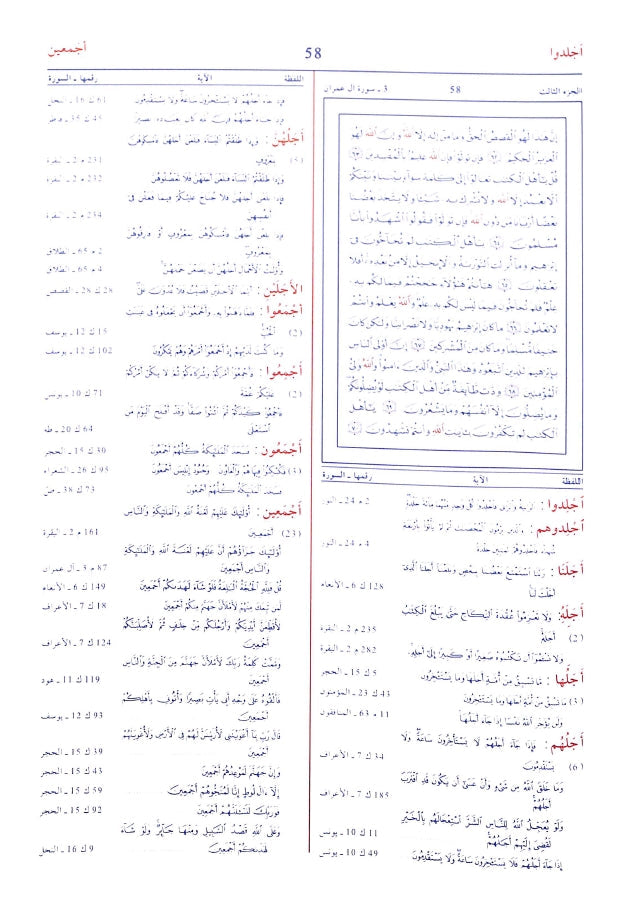 أجلدوا
58
أجمعين
الجزء الثالث
58
3 ـ سورة آل عمران
إن هذا لهو القصص الحق وما من إله إلا الله وإن الله لهو
العزيز الحكيم فإن تولوا فإن الله عليم بالمفسدين
قل يأهل الكتب تعالوا إلى كلمة سواء بيننا وبينكم
ألا نعبد إلا الله ولا نشرك به شيئا ولا يتخذ بعضنا
بعضا أربابا من دون الله فإن تولوا فقولوا اشهدوا بأنا
مسلمون يأهل الكتب لم تحاجون في
إبرهيم وما أنزلت التورىة والإنجيل إلا من بعده أفلا
تعقلون هأنتم هؤلاء حججتم فيما لكم به
علم فلم تحاجون فيما ليس لكم به علم والله يعلم وأنتم
لا تعلمون ما كان إبرهيم يهوديا ولا نصرانيا ولكن كان
حنيفا مسلما وما كان من المشركين إن أولى الناس
بإبرهيم للذين اتبعوه وهذا النبي والذين ءامنوا والله ولي
المؤمنين ودت طائفة من أهل الكتب لو يضلونكم
وما يضلون إلا أنفسهم وما يشعرون يأهل
الكتب لم تكفرون بئايت الله وأنتم تشهدون
اللفظة الآية رقمها ـ السورة
أجلدوا : الزانية والزاني فاجلدوا كل وحد منهما مائة جلدة 2 م 24 ـ النور
أجلدوهم : والذين يرمون المحصنت ثم لم يأتوا بأربعة
شهداء فاجلدوهم ثمنين جلدة 4 م 24 ـ النور
أجلنا : ربنا استمتع بعضنا ببعض وبلغنا أجلنا الذي
أجلت لنا 128 ك 6 ـ الأنعام
أجله : ولا تعزموا عقدة النكاح حتى يبلغ الكتب
(2) أجله 235 م 2 ـ البقرة
ولا تسئموا أن تكتبوه صغيرا أو كبيرا إلى أجله 282 م 2 ـ البقرة
أجلها : ما تسبق من أمة أجلها وما يستئخرون 5 ك 15 ـ الحجر
(3) ما تسبق من أمة أجلها وما يستئخرون 43 ك 23 ـ المؤمنون
ولن يؤخر الله نفسا إذا جاء أجلها 11 م 63 ـ المنافقون
أجلهم : فإذا جاء أجلهم لا يستأخرون ساعة ولا
(6) يستقدمون 34 ك 7 ـ الأعراف
وما خلق الله من شيء وأن عسى أن يكون قد اقترب
أجلهم 185 ك 7 ـ الأعراف
ولو يعجل الله للناس الشر استعجالهم بالخير
لقضي إليهم أجلهم 11 ك 10 ـ يونس
إذا جاء أجلهم فلا يستئخرون ساعة ولا يستقدمون 49 ك 10 ـ يونس
اللفظة الآية رقمها ـ السورة
فإذا جاء أجلهم لا يستئخرون ساعة ولا يستقدمون 61 ك 16 ـ النحل
فإذا جاء أجلهم فإن الله كان بعباده بصيرا 45 ك 35 ـ فاطر
أجلهن : وإذا طلقتم النساء فبلغن أجلهن فأمسكوهن
(5) بمعروف 231 م 2 ـ البقرة
وإذا طلقتم النساء فبلغن أجلهن فلا تعضلوهن 232 م 2 ـ البقرة
فإذا بلغن أجلهن فلا جناح عليكم فيما فعلن في
أنفسهن 234 م 2 ـ البقرة
فإذا بلغن أجلهن فأمسكوهن بمعروف أو فارقوهن
بمعروف 2 م 65 ـ الطلاق
وأولت الأحمال أجلهن أن يضعن حملهن 4 م 65 ـ الطلاق
الأجلين : أيما الأجلين قضيت فلا عدون علي 28 ك 28 ـ القصص
أجمعوا : فلما ذهبوا به وأجمعوا أن يجعلوه في غيبت
(2) الجب 15 ك 12 ـ يوسف
وما كنت لديهم إذ أجمعوا أمرهم وهم يمكرون 102 ك 12 ـ يوسف
أجمعوا : فأجمعوا أمركم وشركاءكم ثم لا يكن أمركم
(2) عليكم غمة 71 ك 10 ـ يونس
فأجمعوا كيدكم ثم ائتوا صفا وقد أفلح اليوم من
استعلى 64 ك 20 ـ طه
أجمعون : فسجد الملئكة كلهم أجمعون 30 ك 15 ـ الحجر
(3) فكبكبوا فيها هم والغاون وجنود إبليس أجمعون 95 ك 26 ـ الشعراء
فسجد الملئكة كلهم أجمعون 73 ك 38 ـ ص
أجمعين : أولئك عليهم لعنة الله والملئكة والناس
(23) أجمعين 161 م 2 ـ البقرة
أولئك جزاؤهم أن عليهم لعنة الله والملئكة
والناس أجمعين 87 م 3 ـ آل عمران
قل فلله الحجة البلغة فلو شاء لهدىكم أجمعين 149 ك 6 ـ الأنعام
لمن تبعك منهم لأملأن جهنم منكم أجمعين 18 ك 7 ـ الأعراف
لأقطعن أيديكم وأرجلكم من خلف ثم لأصلبنكم
أجمعين 124 ك 7 ـ الأعراف
وتمت كلمة ربك لأملأن جهنم من الجنة والناس
أجمعين 119 ك 11 ـ هود
فألقوه على وجه أبي يأت بصيرا وأتوني بأهلكم
أجمعين 93 ك 12 ـ يوسف
قال رب بما أغويتني لأزينن لهم في الأرض ولأغوينهم
أجمعين 39 ك 15 ـ الحجر
وإن جهنم لموعدهم أجمعين 43 ك 15 ـ الحجر
إلا ءال لوط إنا لمنجوهم أجمعين 59 ك 15 ـ الحجر
فوربك لنسئلنهم أجمعين 92 ك 15 ـ الحجر
وعلى الله قصد السبيل ومنها جائر ولو شاء
لهدىكم أجمعين 9 ك 16 ـ النحل